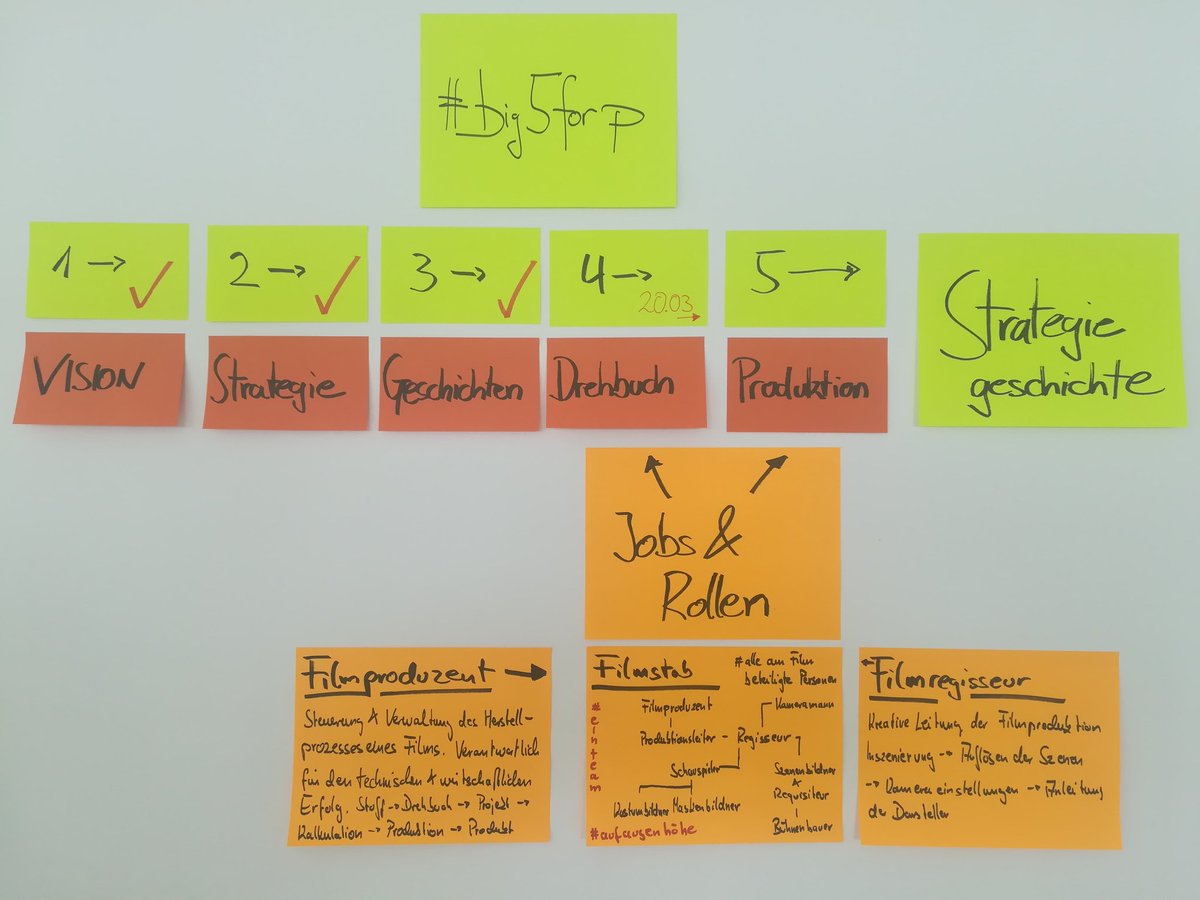 #big5forp
1 → ✓
2 → ✓
3 → ✓
4 →
20.03 →
5 →
VISION
Strategie
Geschichten
Drehbuch
Produktion
Strategie
geschichte
Jobs &
Rollen
Filmproduzent →
Steuerung & Verwaltung des Herstell-
prozesses eines Films. Verantwortlich
für den technischen & wirtschaftlichen
Erfolg. Stoff → Drehbuch → Projekt →
Kalkulation → Produktion → Produkt
Filmstab
#alle am Film
beteiligte Personen
#einteam
Filmproduzent
Kameramann
Produktionsleiter - Regisseur
Schauspieler
Szenenbildner
&
Requisiteur
Kostümbildner Maskenbildner
Bühnenbauer
#aufaugenhöhe
Filmregisseur
Kreative Leitung der Filmproduktion
Inszenierung → Auflösen der Szenen
→ Kameraeinstellungen → Anleitung
der Darsteller